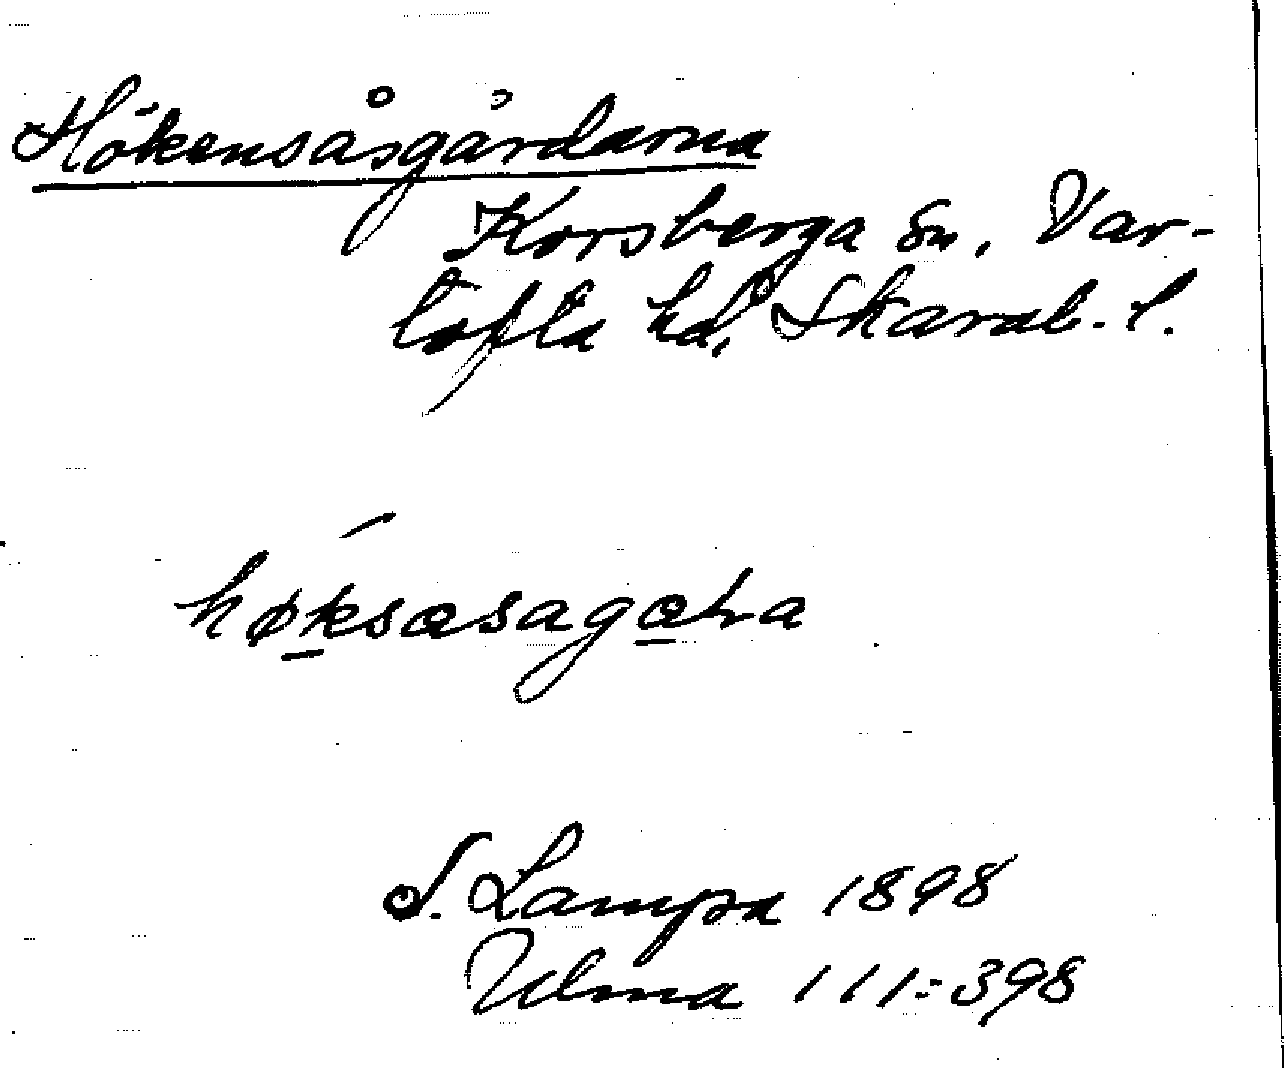 Hökensåsgårdarna
Korsberga sn, Var-
tofta hd, Skarab. l.
høksasagaɫa
S. Lampa 1898
Ulma 111:398